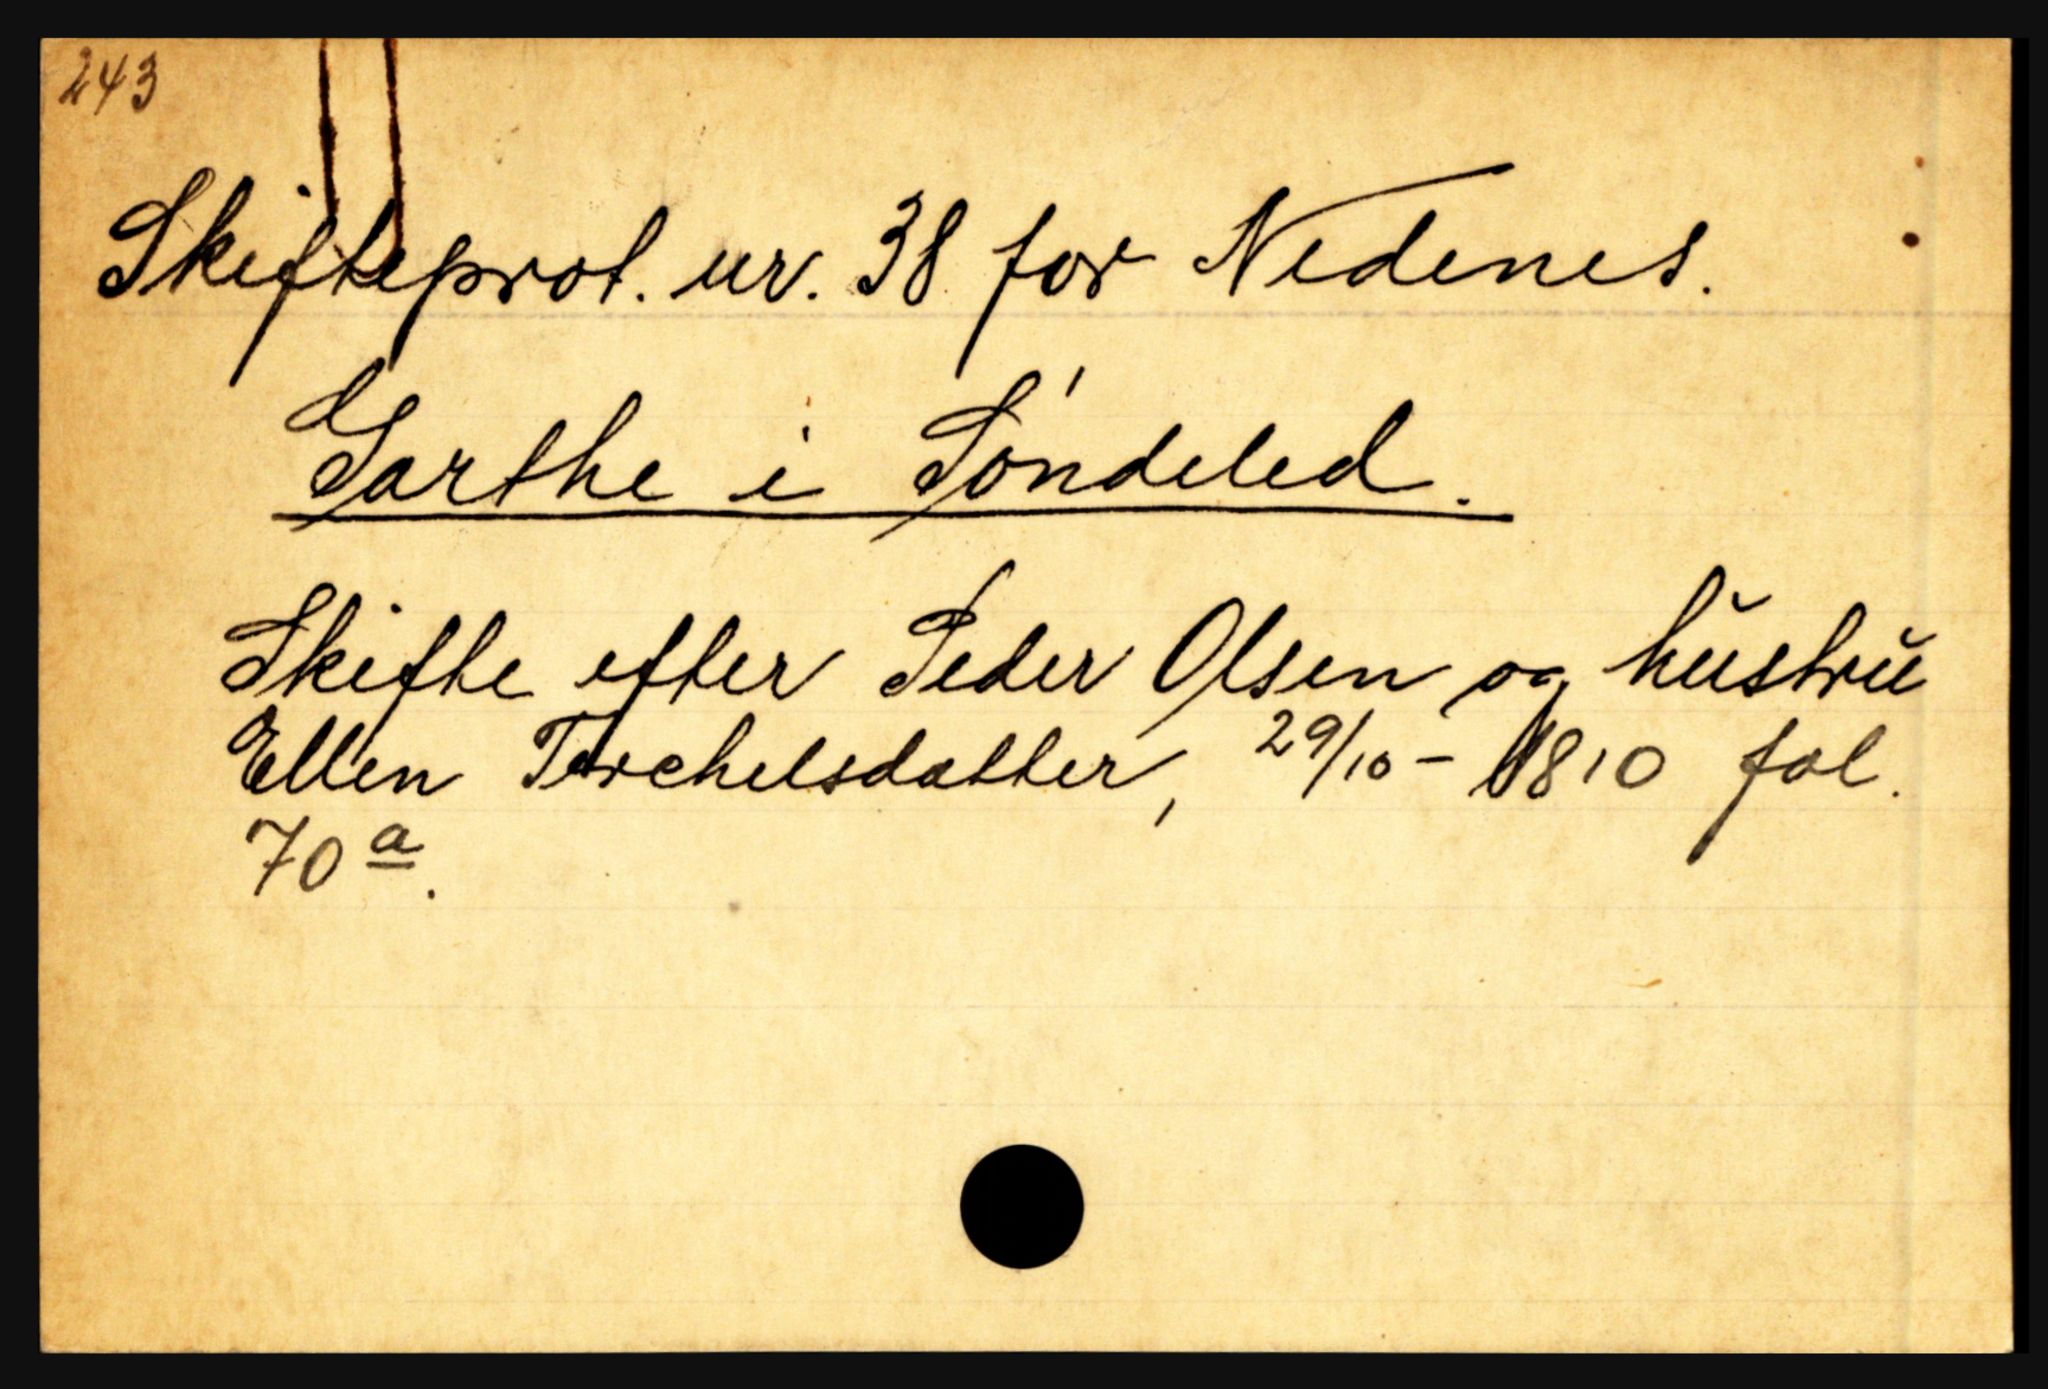 243
Skifteprot. nr. 38 for Nedenes.
Garthe i Søndeled.
Skifte efter Peder Olsen og hustru
Ellen Terchelsdatter, 29/10 - 1810 fol.
70 a.